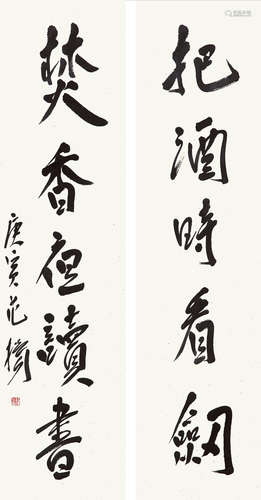 把酒時看劒
焚香夜讀書
庚寅 范擴